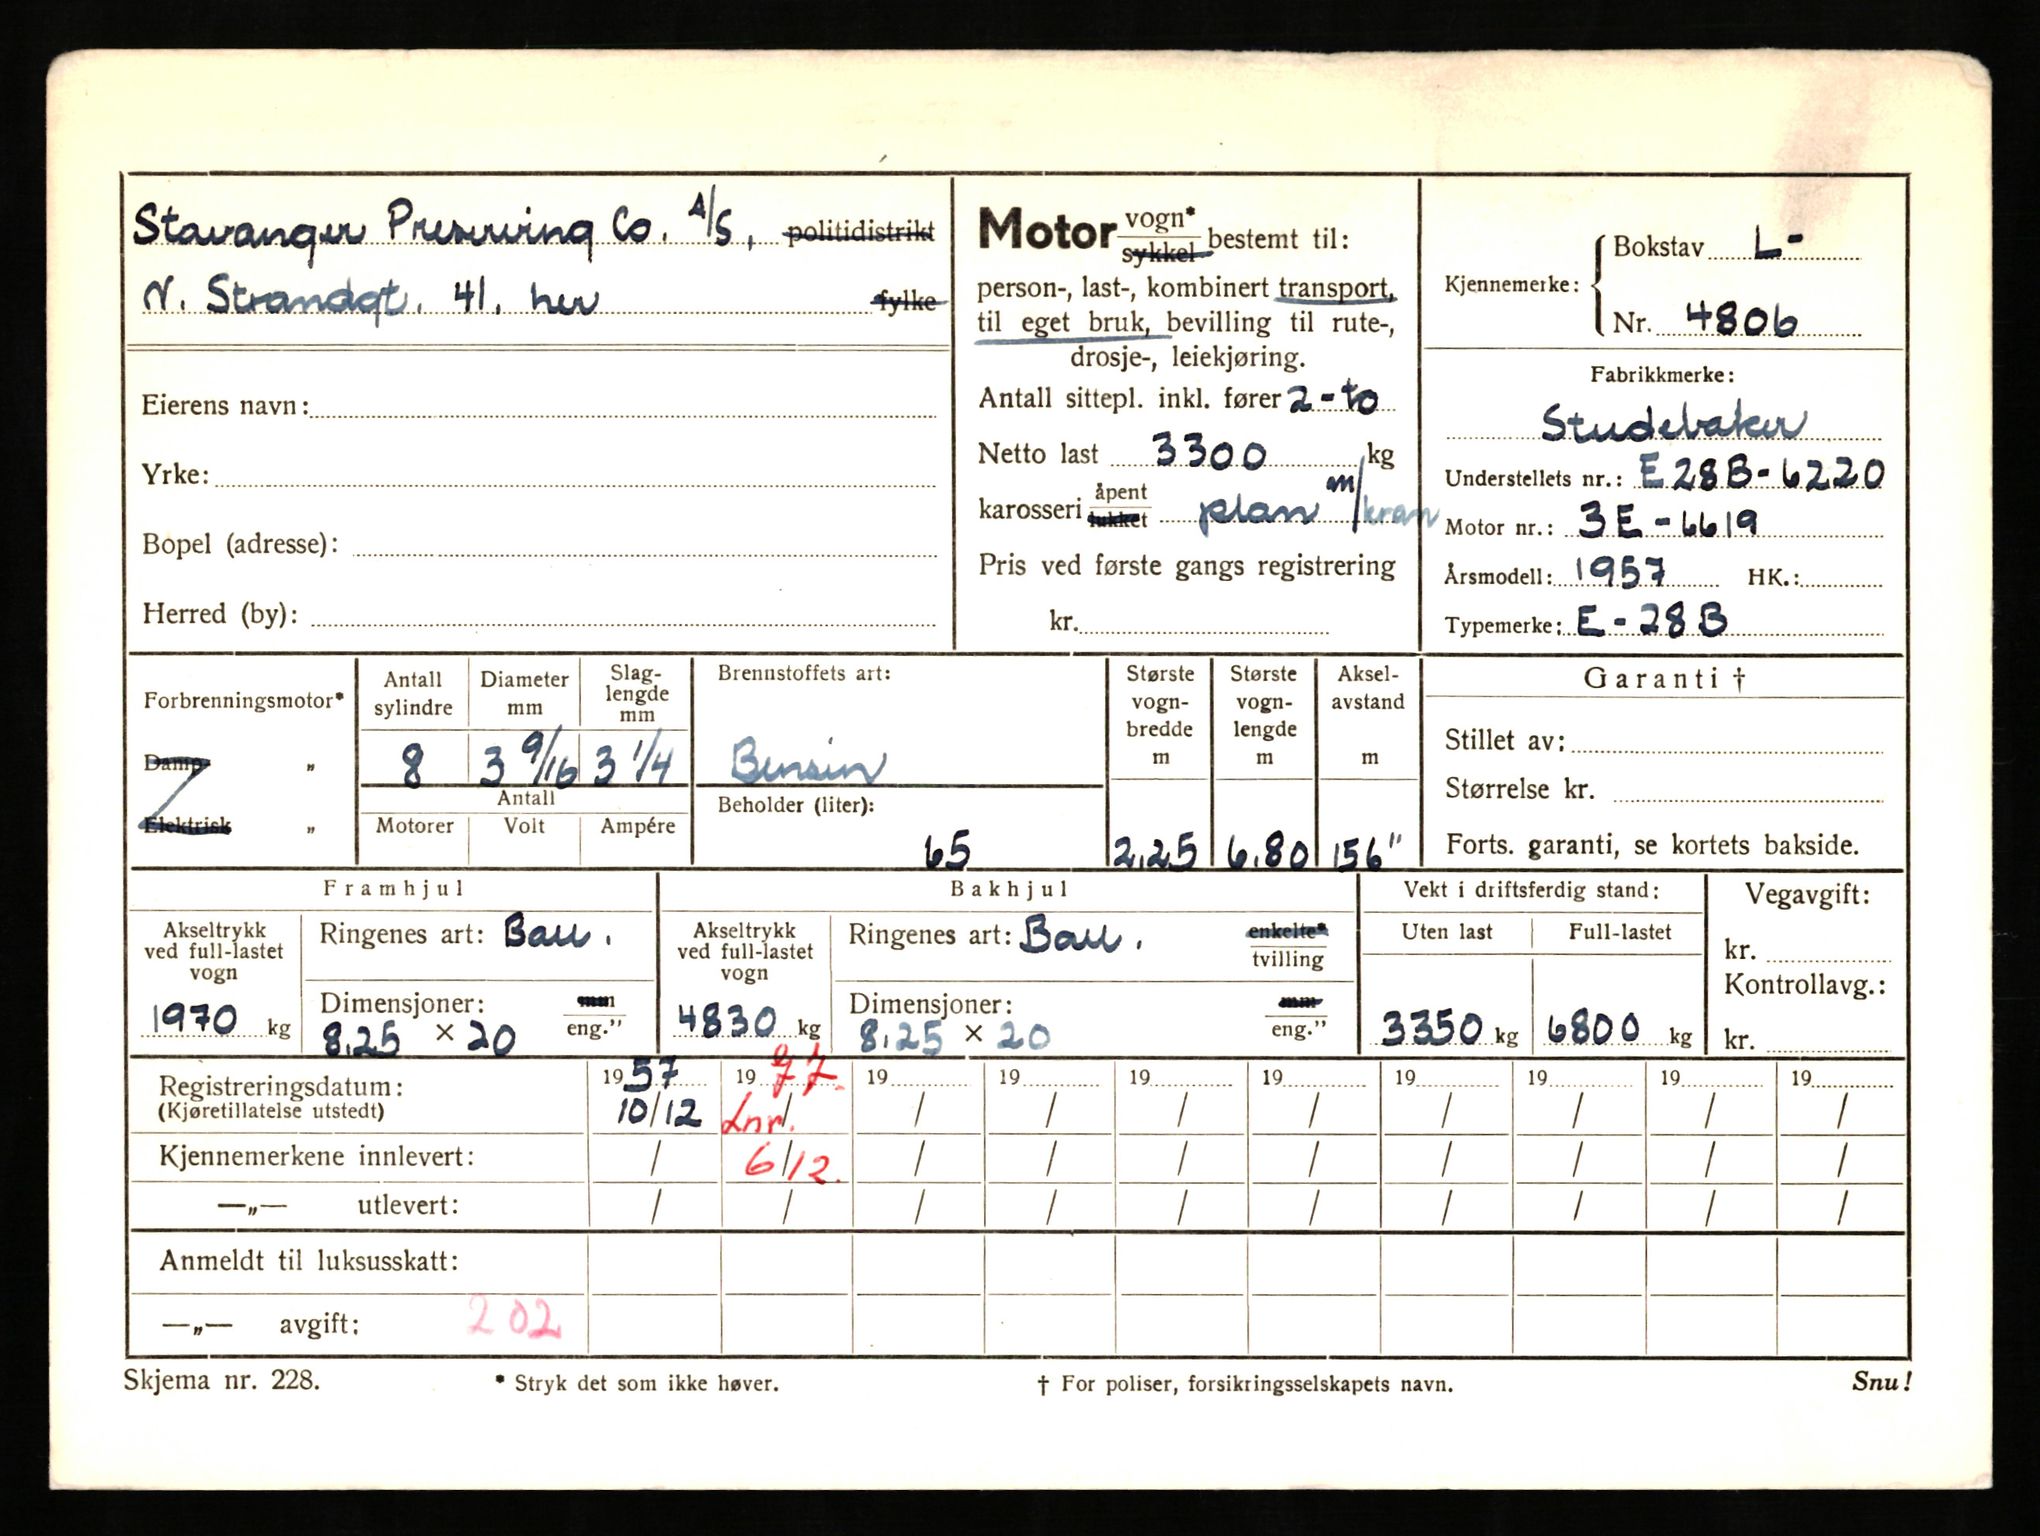 Stavanger Preserving Co. A/S, politidistrikt
N. Strandgt. 41. her fylke
Eierens navn:
Yrke:
Bopel (adresse):
Herred (by):
Motor vogn* sykkel bestemt til:
person-, last-, kombinert transport,
til eget bruk, bevilling til rute-,
drosje-, leiekjøring.
Antall sittepl. inkl. fører 2 - to
Netto last 3300 kg
karosseri åpent lukket plan m/kran
Pris ved første gangs registrering
kr.
Kjennemerke: Bokstav L-
Nr. 4806
Fabrikkmerke:
Studebaker
Understellets nr.: E28B-6220
Motor nr.: 3E-6619
Årsmodell: 1957 HK.:
Typemerke: E-28B
Forbrenningsmotor*
Damp "
Elektrisk "
Antall sylindre 8
Diameter mm 3 9/16
Slaglengde mm 3 1/4
Antall
Motorer Volt Ampére
Brennstoffets art:
Bensin
Beholder (liter):
65
Største vognbredde m 2,25
Største vognlengde m 6,80
Akselavstand m 156"
Garanti †
Stillet av:
Størrelse kr.
Forts. garanti, se kortets bakside.
Framhjul
Akseltrykk ved full-lastet vogn 1970 kg
Ringenes art: Ball.
Dimensjoner: mm eng."
8,25 × 20
Bakhjul
Akseltrykk ved full-lastet vogn 4830 kg
Ringenes art: Ball. enkelte* tvilling
Dimensjoner: mm eng."
8,25 × 20
Vekt i driftsferdig stand:
Uten last Full-lastet
3350 kg 6800 kg
Vegavgift:
kr.
Kontrollavg.:
kr.
Registreringsdatum: 1957 1977. 19 19 19 19 19 19 19 19
(Kjøretillatelse utstedt) 10/12 Lnr. / / / / / / / / /
Kjennemerkene innlevert: / 6/12. / / / / / / / /
—„— utlevert: / / / / / / / / / /
Anmeldt til luksusskatt:
—„— avgift: 202
Skjema nr. 228. * Stryk det som ikke høver. † For poliser, forsikringsselskapets navn. Snu!